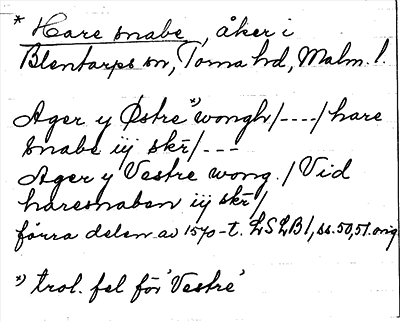 * Hare snabe, åker i
Blentarps sn, Torna hd, Malm. l.
Ager y Østre *) wongh /----/ hare
snabe iij skr̄ /---
Ager y Vestre wong. / Vid
haresnaben iij skr̄ /
förra delen av 1570-t. LSLB1, ss. 50, 51. orig
*) trol. fel för 'Vestre'